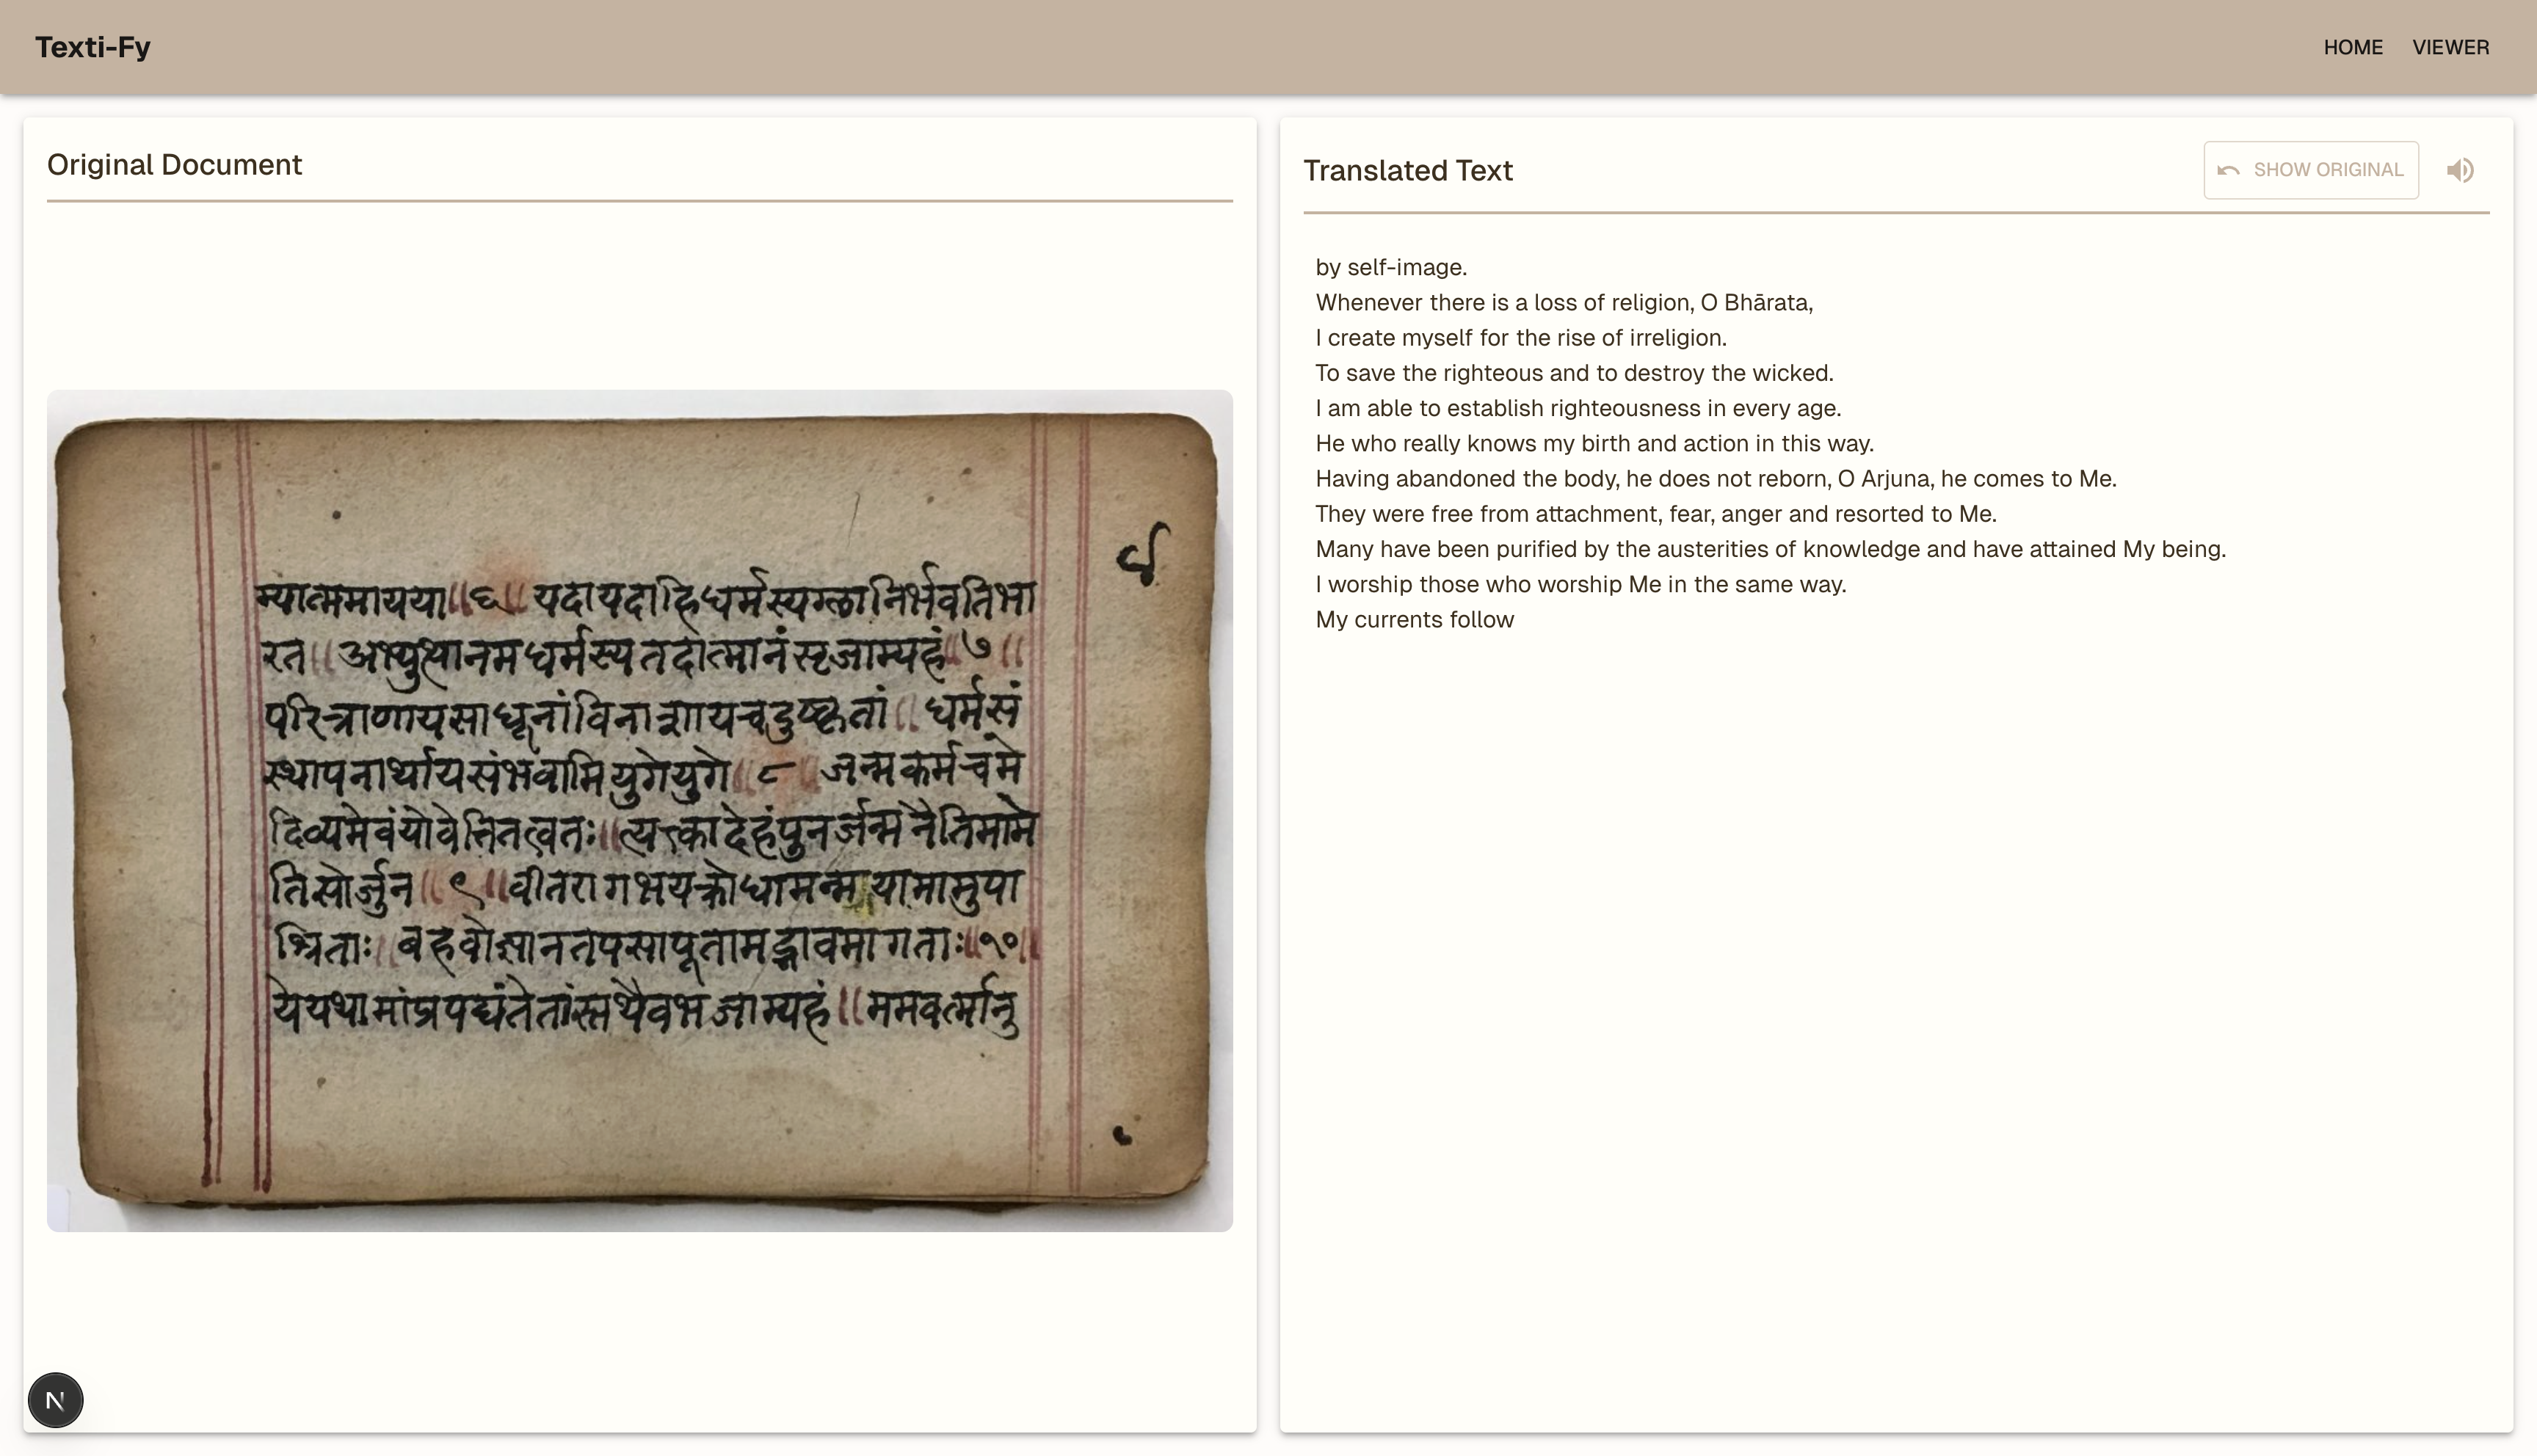 Texti-Fy
HOME VIEWER
Original Document
म्यात्ममायया॥६॥यदायदाहिधर्मस्यग्लानिर्भवतिभा
रत॥अभ्युत्थानमधर्मस्यतदात्मानंसृजाम्यहं॥७॥
परित्राणायसाधूनांविनाशायचदुष्कृतां॥धर्मसं
स्थापनार्थायसंभवामियुगेयुगे॥८॥जन्मकर्मचमे
दिव्यमेवंयोवेत्तितत्वतः॥त्यक्त्कादेहंपुनर्जन्मनैतिमामे
तिसोर्जुन॥९॥वीतरागभयक्रोधामन्मयामामुपा
श्रिताः॥बहवोज्ञानतपसापूतामद्भावमागताः॥१०॥
येयथामांप्रपद्यंतेतांस्तथैवभजाम्यहं॥ममवर्त्मानु
N
Translated Text
SHOW ORIGINAL
by self-image.
Whenever there is a loss of religion, O Bhārata,
I create myself for the rise of irreligion.
To save the righteous and to destroy the wicked.
I am able to establish righteousness in every age.
He who really knows my birth and action in this way.
Having abandoned the body, he does not reborn, O Arjuna, he comes to Me.
They were free from attachment, fear, anger and resorted to Me.
Many have been purified by the austerities of knowledge and have attained My being.
I worship those who worship Me in the same way.
My currents follow